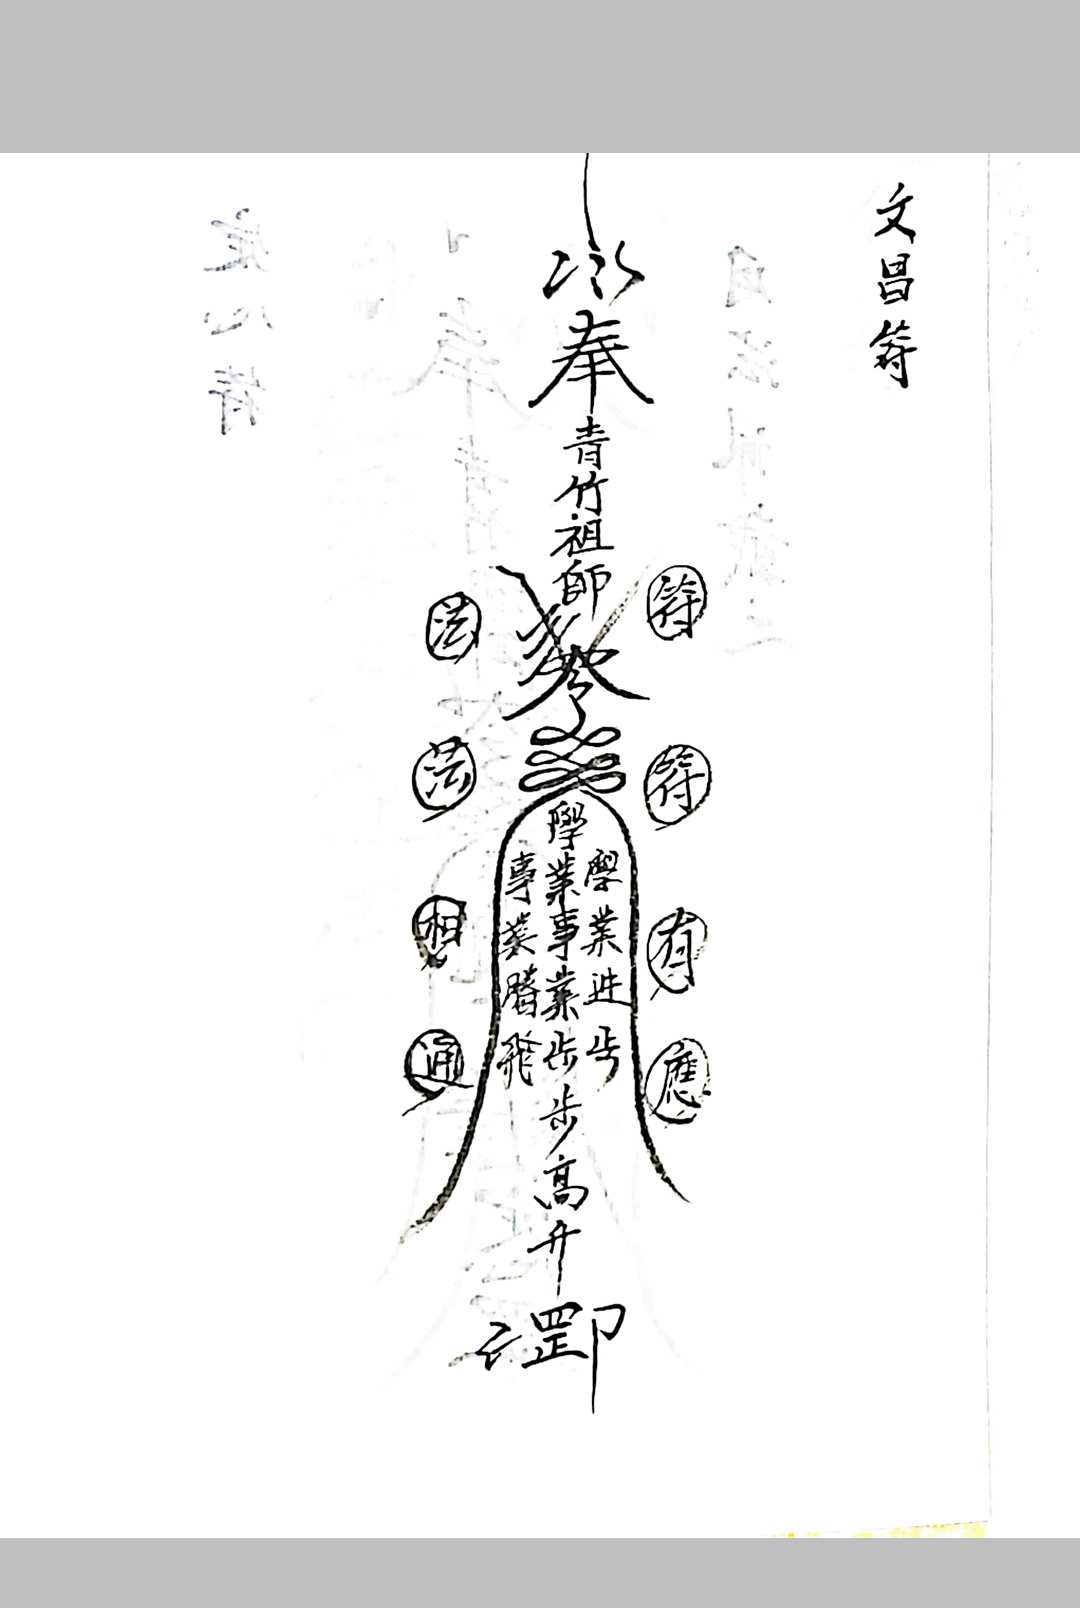 文昌符
奉
青竹祖師
令
符
符
有
應
學業進步
學業事業步步高升
事業騰飛
法
法
相
通
罡印